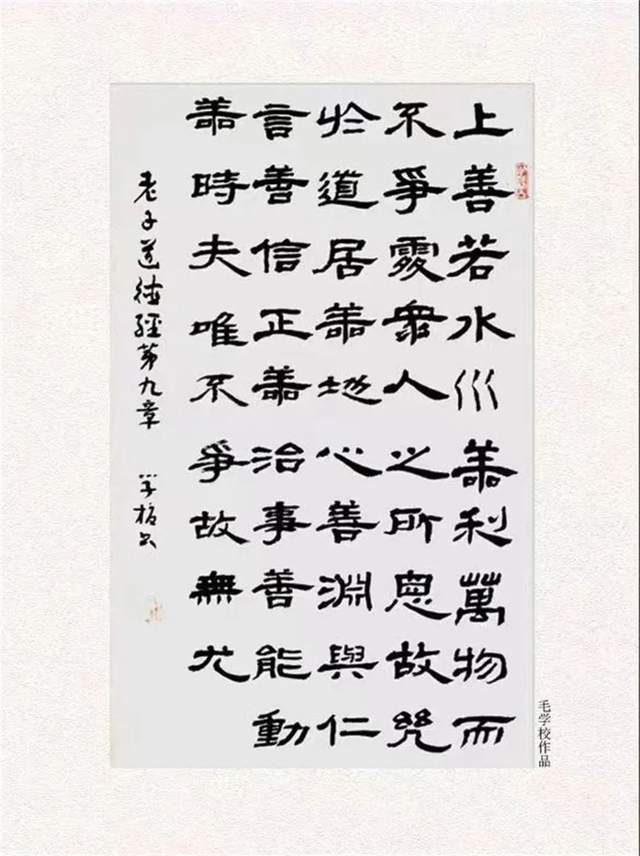 上善若水水善利萬物而
不爭處衆人之所惡故幾
於道居善地心善淵與仁
言善信正善治事善能動
善時夫唯不爭故無尤
老子道德經第九章 学校书
毛学校作品